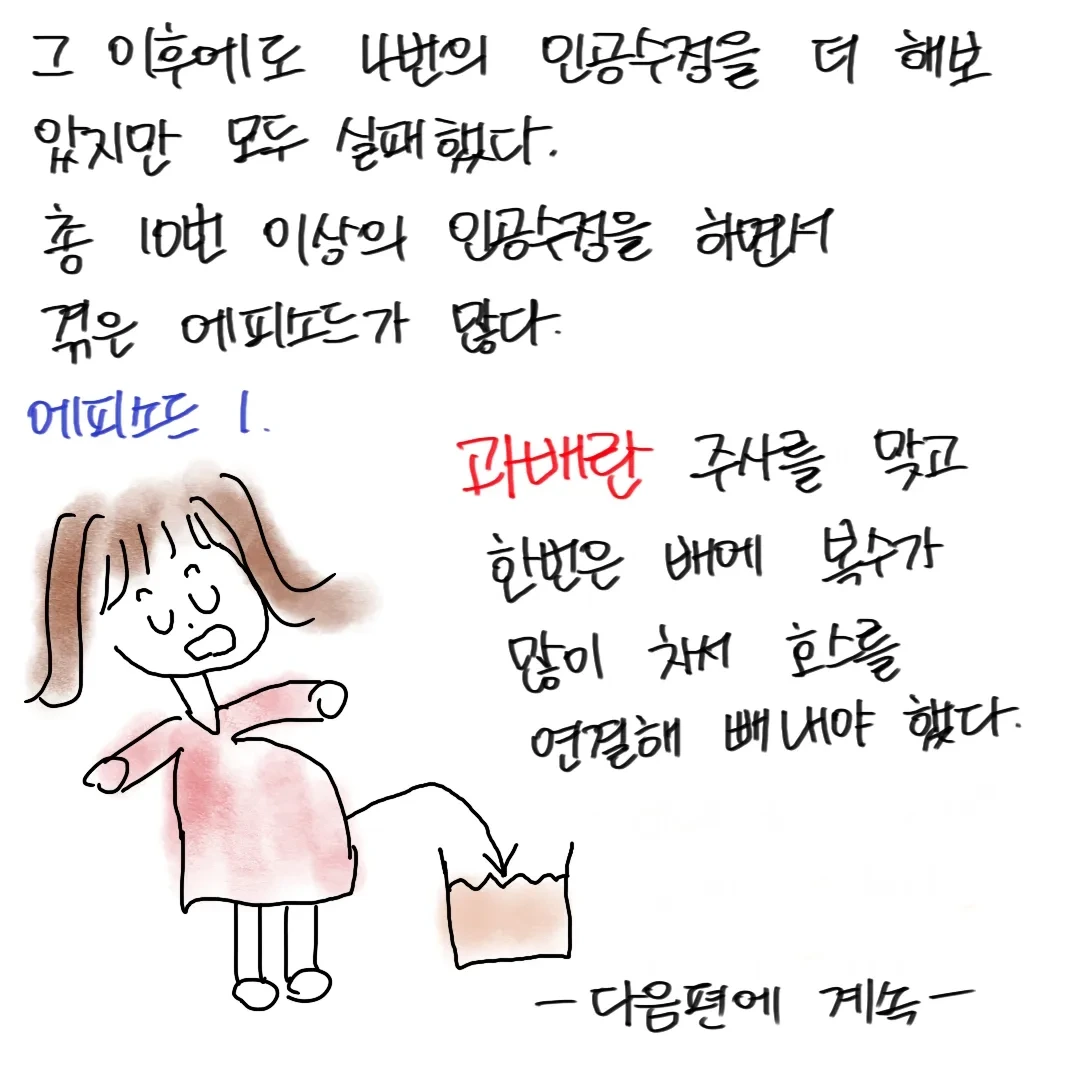 그 이후에도 4번의 인공수정을 더 해보
았지만 모두 실패했다.
총 10번 이상의 인공수정을 하면서
겪은 에피소드가 많다.
에피소드 1.
과배란 주사를 맞고
한번은 배에 복수가
많이 차서 호스를
연결해 빼내야 했다.
-다음편에 계속-